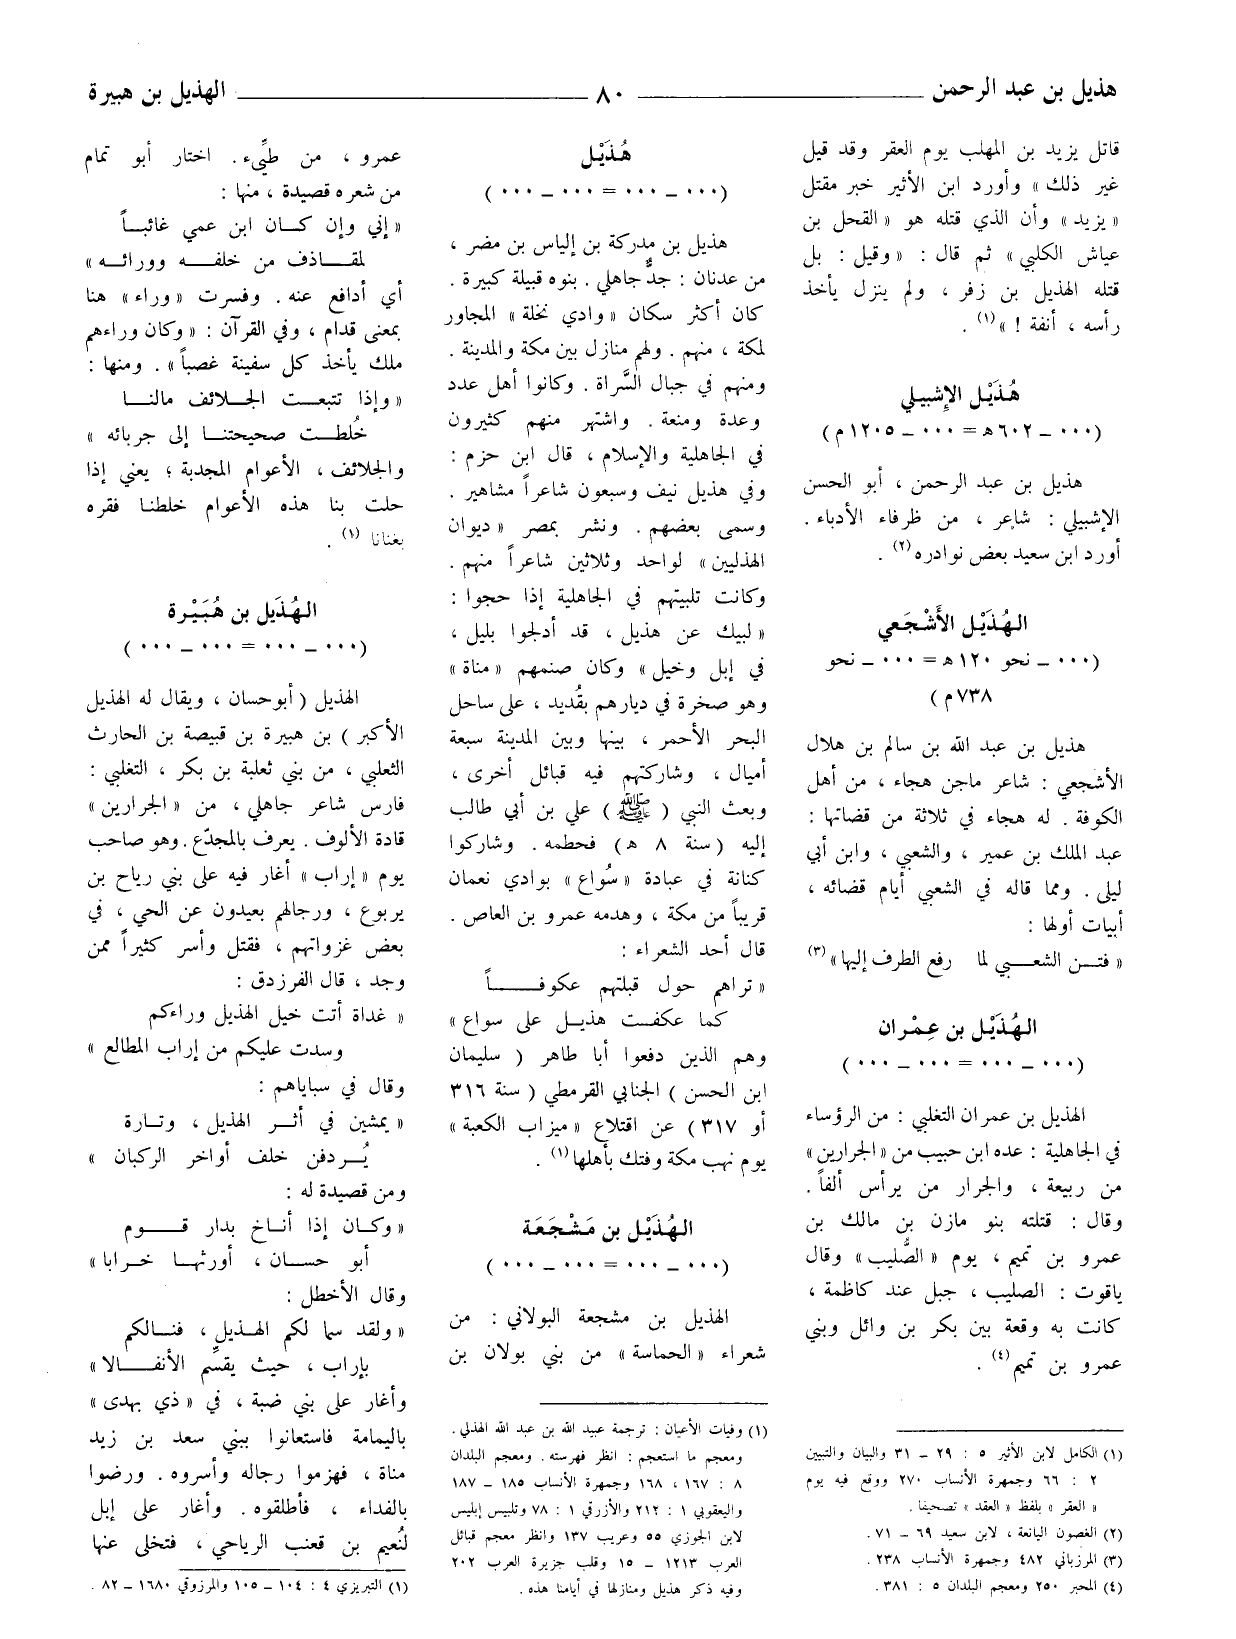 هذيل بن عبد الرحمن ــــــــ ٨٠ ــــــــ الهذيل بن هبيرة
قاتل يزيد بن المهلب يوم العقر وقد قيل
غير ذلك » وأورد ابن الأثير خبر مقتل
« يزيد » وأن الذي قتله هو « القحل بن
عياش الكلبي » ثم قال : « وقيل : بل
قتله الهذيل بن زفر ، ولم ينزل يأخذ
رأسه ، أنفة ! »(١) .
هُذَيْل الإِشبيلي
(٠٠٠ ــ ٦٠٢هـ = ٠٠٠ ــ ١٢٠٥م)
هذيل بن عبد الرحمن ، أبو الحسن
الإشبيلي : شاعر ، من ظرفاء الأدباء .
أورد ابن سعيد بعض نوادره(٢) .
الهُذَيْل الأَشْجَعي
(٠٠٠ ــ نحو ١٢٠هـ = ٠٠٠ ــ نحو
٧٣٨م)
هذيل بن عبد الله بن سالم بن هلال
الأشجعي : شاعر ماجن هجاء ، من أهل
الكوفة . له هجاء في ثلاثة من قضاتها :
عبد الملك بن عمير ، والشعبي ، وابن أبي
ليلى . ومما قاله في الشعبي أيام قضائه ،
أبيات أولها :
« فتــن الشعــبي لما رفع الطرف إليها »(٣)
الهُذَيْل بن عِمْران
(٠٠٠ ــ ٠٠٠ = ٠٠٠ ــ ٠٠٠)
الهذيل بن عمران التغلبي : من الرؤساء
في الجاهلية : عده ابن حبيب من «الجرارين»
من ربيعة ، والجرار من يرأس ألفاً .
وقال : قتلته بنو مازن بن مالك بن
عمرو بن تميم ، يوم « الصُّليب » وقال
ياقوت : الصليب ، جبل عند كاظمة ،
كانت به وقعة بين بكر بن وائل وبني
عمرو بن تميم(٤) .
(١) الكامل لابن الأثير ٥ : ٢٩ ــ ٣١ والبيان والتبيين
٢ : ٦٦ وجمهرة الأنساب ٢٧٠ ووقع فيه يوم
« العقر » بلفظ « العقد » تصحيفا .
(٢) الغصون اليانعة ، لابن سعيد ٦٩ ــ ٧١ .
(٣) المرزباني ٤٨٢ وجمهرة الأنساب ٢٣٨ .
(٤) المحبر ٢٥٠ ومعجم البلدان ٥ : ٣٨١ .
هُذَيْل
(٠٠٠ ــ ٠٠٠ = ٠٠٠ ــ ٠٠٠)
هذيل بن مدركة بن إلياس بن مضر ،
من عدنان : جدٌّ جاهلي . بنوه قبيلة كبيرة .
كان أكثر سكان « وادي نخلة » المجاور
لمكة ، منهم . ولهم منازل بين مكة والمدينة .
ومنهم في جبال السَّراة . وكانوا أهل عدد
وعدة ومنعة . واشتهر منهم كثيرون
في الجاهلية والإسلام ، قال ابن حزم :
وفي هذيل نيف وسبعون شاعراً مشاهير .
وسمى بعضهم . ونشر بمصر « ديوان
الهذليين » لواحد وثلاثين شاعراً منهم .
وكانت تلبيتهم في الجاهلية إذا حجوا :
« لبيك عن هذيل ، قد أدلجوا بليل ،
في إبل وخيل » وكان صنمهم « مناة »
وهو صخرة في ديارهم بقُديد ، على ساحل
البحر الأحمر ، بينها وبين المدينة سبعة
أميال ، وشاركتهم فيه قبائل أخرى ،
وبعث النبي ( ﷺ ) علي بن أبي طالب
إليه (سنة ٨ هـ) فحطمه . وشاركوا
كنانة في عبادة « سُواع » بوادي نعمان
قريباً من مكة ، وهدمه عمرو بن العاص .
قال أحد الشعراء :
« تراهم حول قبلتهم عكوفـــاً
كما عكفت هذيــل على سواع »
وهم الذين دفعوا أبا طاهر ( سليمان
ابن الحسن ) الجنابي القرمطي ( سنة ٣١٦
أو ٣١٧) عن اقتلاع « ميزاب الكعبة »
يوم نهب مكة وفتك بأهلها(١) .
الهُذَيْل بن مَشْجَعَة
(٠٠٠ ــ ٠٠٠ = ٠٠٠ ــ ٠٠٠)
الهذيل بن مشجعة البولاني : من
شعراء « الحماسة » من بني بولان بن
(١) وفيات الأعيان : ترجمة عبيد الله بن عبد الله الهذلي .
ومعجم ما استعجم : انظر فهرسته . ومعجم البلدان
٨ : ١٦٧ ، ١٦٨ وجمهرة الأنساب ١٨٥ ــ ١٨٧
واليعقوبي ١ : ٢١٢ والأزرقي ١ : ٧٨ وتلبيس إبليس
لابن الجوزي ٥٥ وعريب ١٣٧ وانظر معجم قبائل
العرب ١٢١٣ ــ ١٥ وقلب جزيرة العرب ٢٠٢
وفيه ذكر هذيل ومنازلها في أيامنا هذه .
عمرو ، من طيِّىء . اختار أبو تمام
من شعره قصيدة ، منها :
« إني وإن كــان ابن عمي غائبــاً
لمقــاذف من خلفــه وورائــه »
أي أدافع عنه . وفسرت « وراء » هنا
بمعنى قدام ، وفي القرآن : « وكان وراءهم
ملك يأخذ كل سفينة غصباً » . ومنها :
« وإذا تتبعــت الجــلائف مالنــا
خُلطــت صحيحتنــا إلى جربائه »
والجلائف ، الأعوام المجدبة ؛ يعني إذا
حلت بنا هذه الأعوام خلطنا فقره
بغنانا (١) .
الهُذَيل بن هُبَيْرة
(٠٠٠ ــ ٠٠٠ = ٠٠٠ ــ ٠٠٠)
الهذيل ( أبو حسان ، ويقال له الهذيل
الأكبر ) بن هبيرة بن قبيصة بن الحارث
الثعلبي ، من بني ثعلبة بن بكر ، التغلبي :
فارس شاعر جاهلي ، من « الجرارين »
قادة الألوف . يعرف بالمجدّع . وهو صاحب
يوم « إراب » أغار فيه على بني رياح بن
يربوع ، ورجالهم بعيدون عن الحي ، في
بعض غزواتهم ، فقتل وأسر كثيراً ممن
وجد ، قال الفرزدق :
« غداة أتت خيل الهذيل وراءكم
وسدت عليكم من إراب المطالع »
وقال في سباياهم :
« يمشين في أثــر الهذيل ، وتــارة
يُــردفن خلف أواخر الركبان »
ومن قصيدة له :
« وكــان إذا أنــاخ بدار قــوم
أبو حســان ، أورثهــا خــرابا »
وقال الأخطل :
« ولقد سما لكم الهــذيل ، فنــالكم
بإراب ، حيث يقسِّم الأنفــالا »
وأغار على بني ضبة ، في « ذي بهدى »
باليمامة فاستعانوا ببني سعد بن زيد
مناة ، فهزموا رجاله وأسروه . ورضوا
بالفداء ، فأطلقوه . وأغار على إبل
لنُعيم بن قعنب الرياحي ، فتخلى عنها
(١) التبريزي ٤ : ١٠٤ ــ ١٠٥ والمرزوقي ١٦٨٠ ــ ٨٢ .